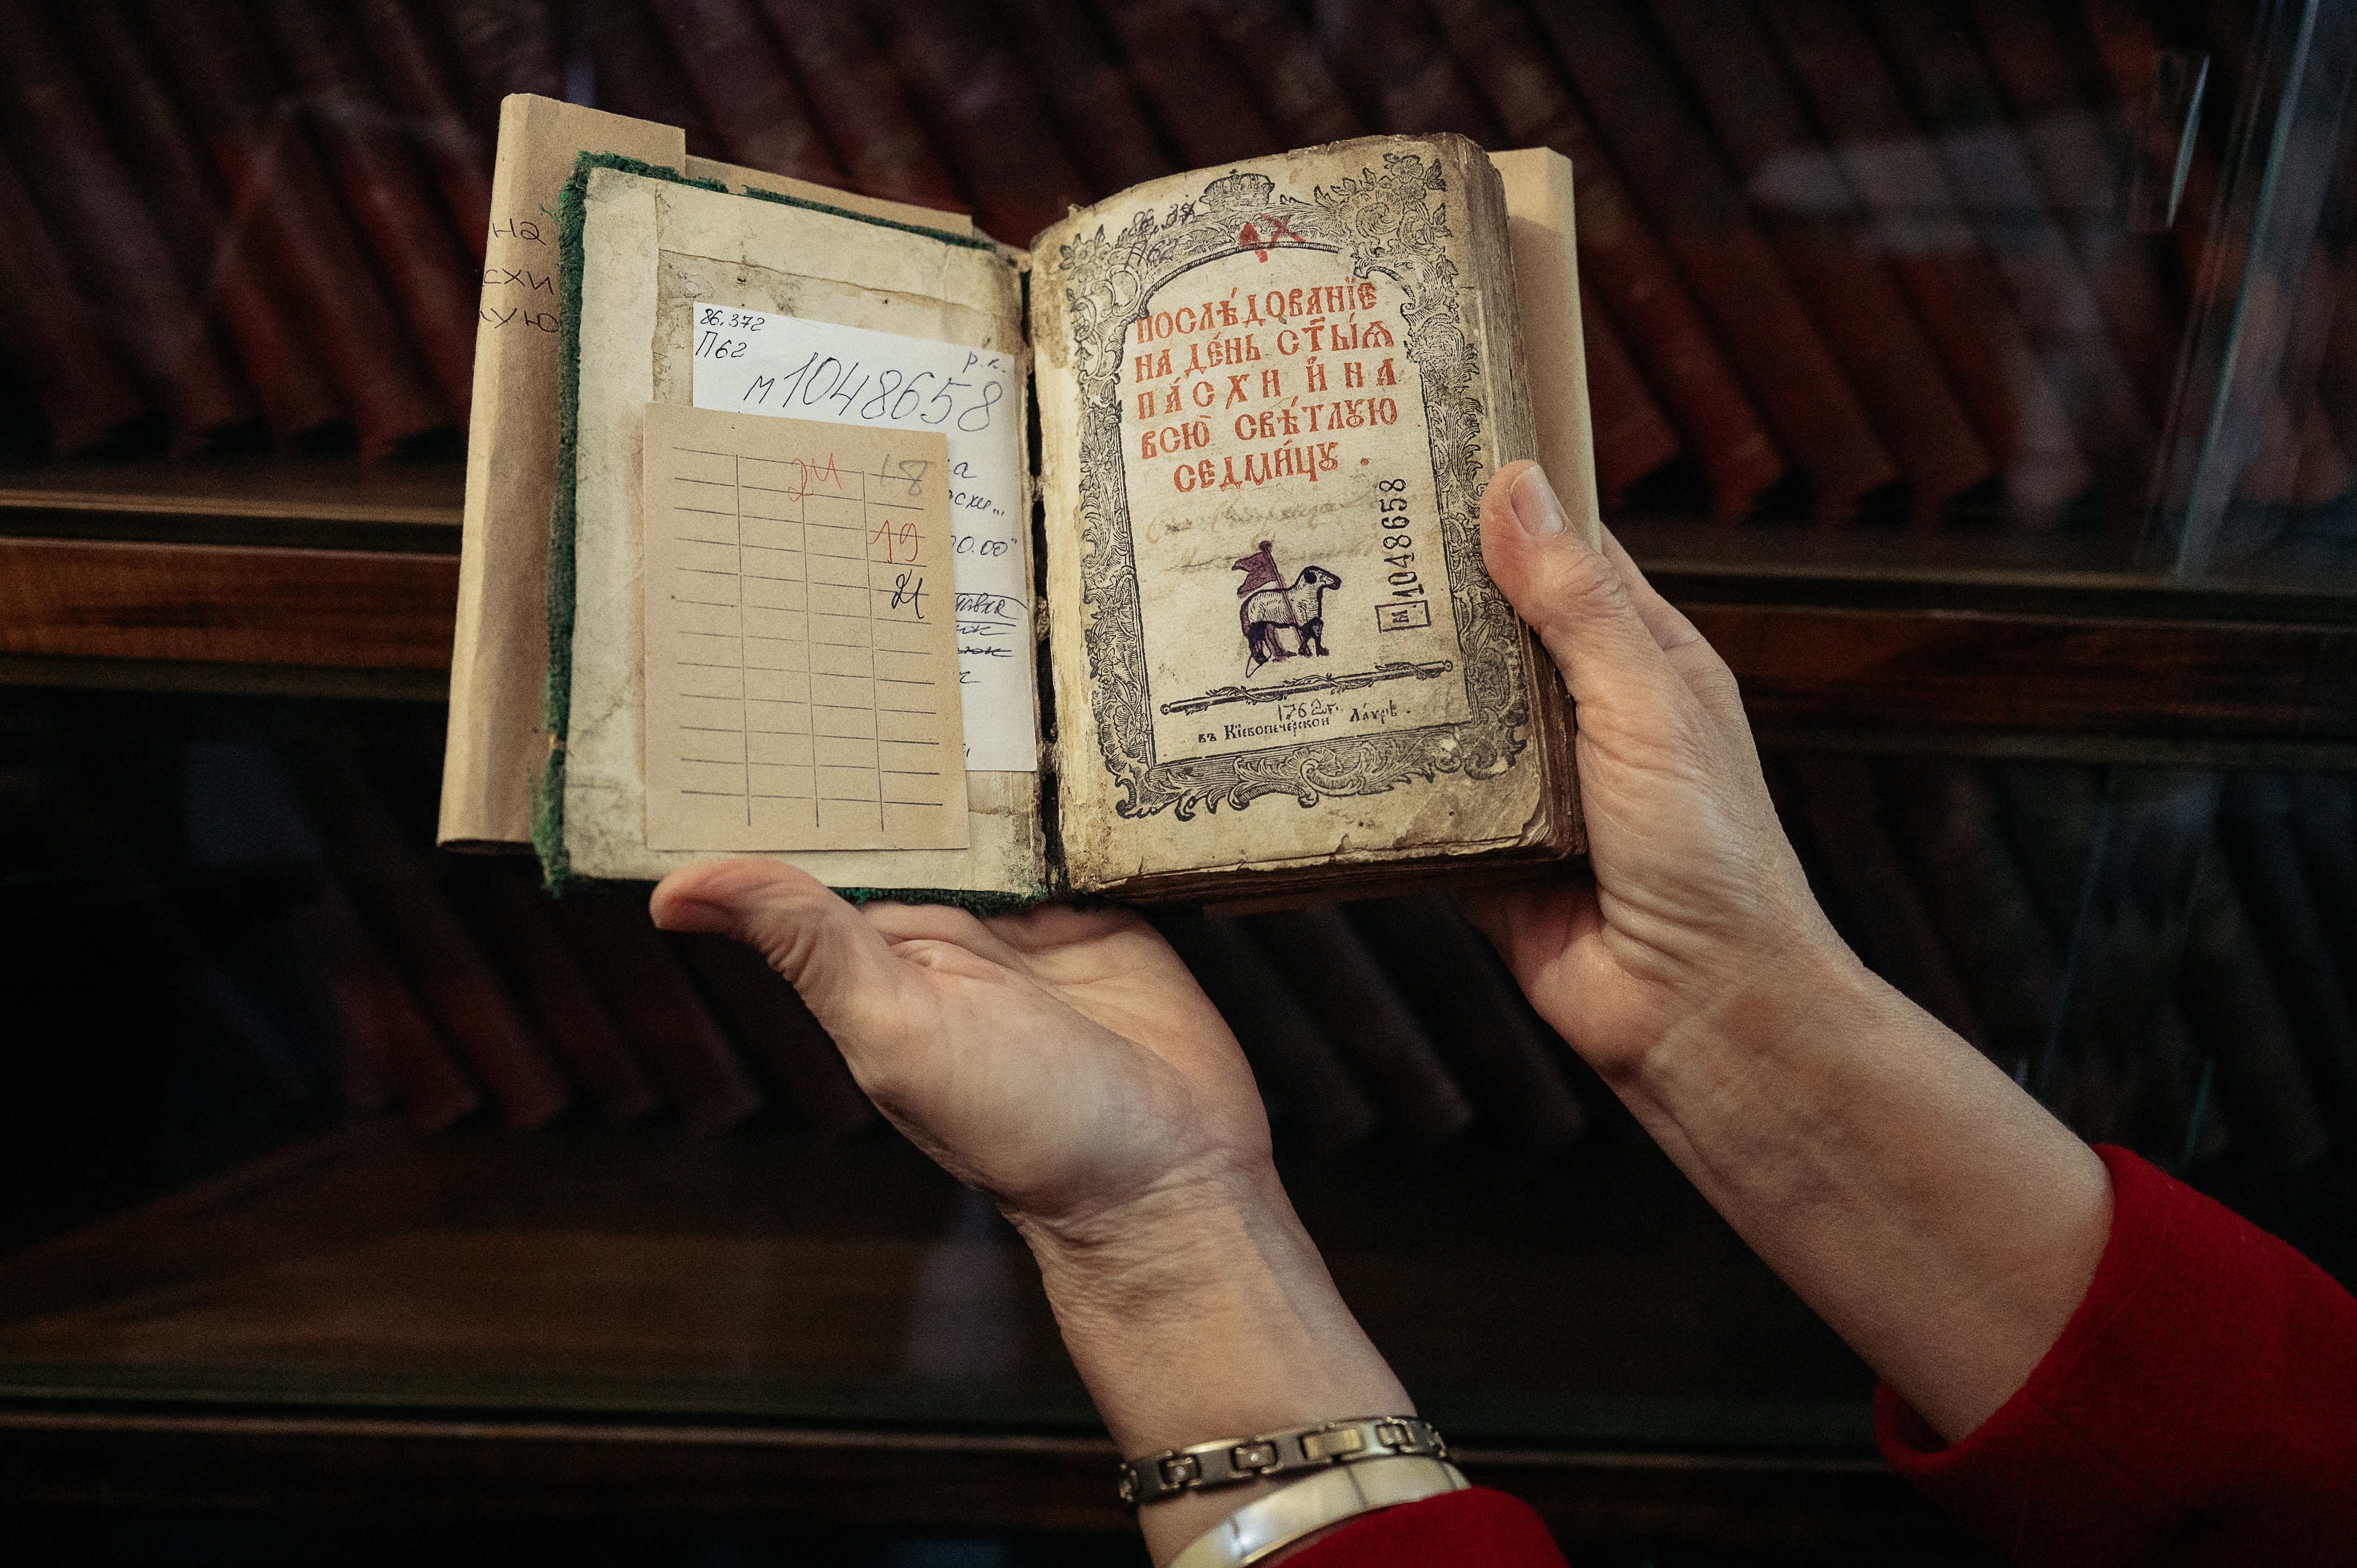 на
схи
ую
86.372
П62
р.к.
м1048658
24
18
19
21
86.37
П62
ПОСЛѢ́ДОВАНЇЕ
НА ДЕ́НЬ СТ҃Ы́Ѧ
ПА́СХИ И҆ НА
ВСЮ̀ СВѢ́ТЛꙊЮ
СЕДМИ́ЦꙊ.
м.1048658
1762г.
въ Кїевопечерской Ла́ѵрѣ.